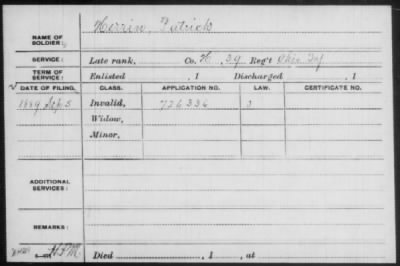 Herrin, Patrick
NAME OF SOLDIER:
SERVICE: Late rank, Co. H, 39 Reg't Ohio Inf
TERM OF SERVICE: Enlisted , 1 Discharged , 1
DATE OF FILING. CLASS. APPLICATION NO. LAW. CERTIFICATE NO.
1889 Sep 5 Invalid, 726336
Widow,
Minor,
ADDITIONAL SERVICES:
REMARKS:
Died , 1 , at